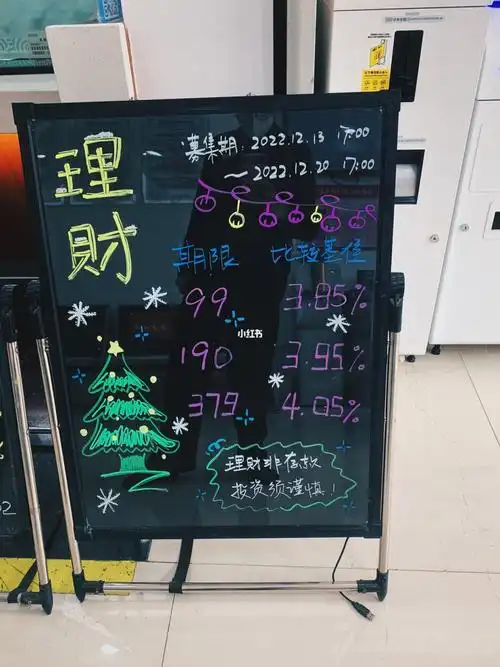 理財
募集期：2022.12.13 17:00
～2022.12.20 17:00
期限 比较基值
99 3.85%
190 3.95%
379 4.05%
小红书
理財非存款
投资须谨慎！